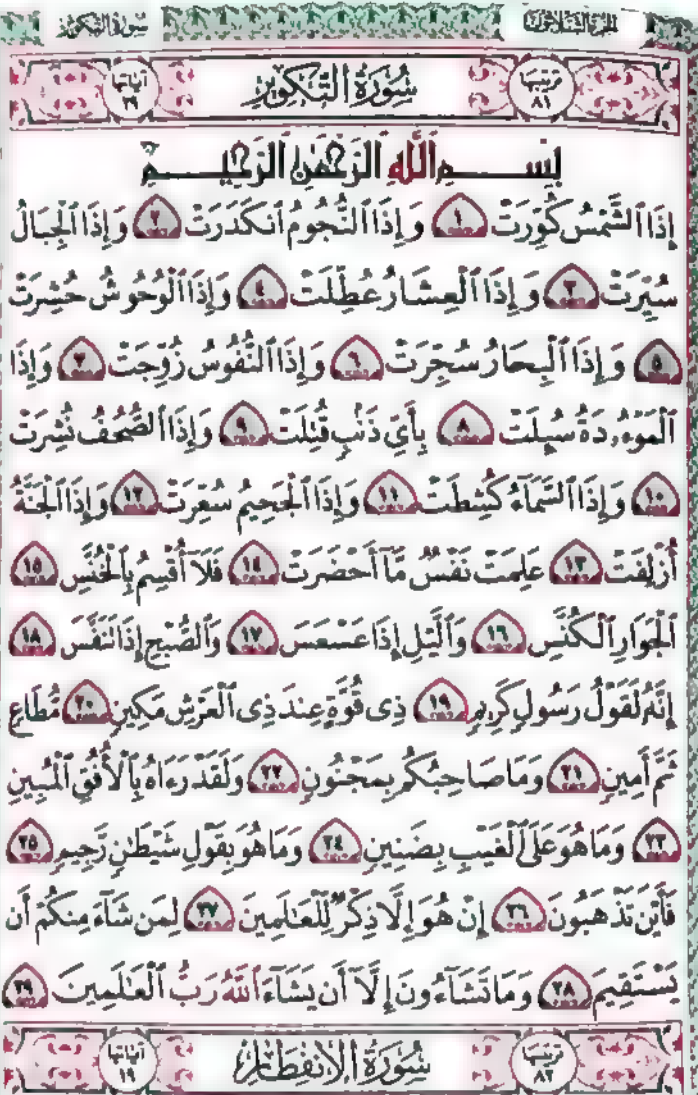 سورة التكوير الجزء الثلاثون
آياتها ٢٩ سُورَةُ التَّكْوِيرِ ترتيبها ٨١
بِسْمِ ٱللَّهِ ٱلرَّحْمَٰنِ ٱلرَّحِيمِ
إِذَا ٱلشَّمْسُ كُوِّرَتْ ١ وَإِذَا ٱلنُّجُومُ ٱنكَدَرَتْ ٢ وَإِذَا ٱلْجِبَالُ
سُيِّرَتْ ٣ وَإِذَا ٱلْعِشَارُ عُطِّلَتْ ٤ وَإِذَا ٱلْوُحُوشُ حُشِرَتْ
٥ وَإِذَا ٱلْبِحَارُ سُجِّرَتْ ٦ وَإِذَا ٱلنُّفُوسُ زُوِّجَتْ ٧ وَإِذَا
ٱلْمَوْءُۥدَةُ سُئِلَتْ ٨ بِأَىِّ ذَنۢبٍ قُتِلَتْ ٩ وَإِذَا ٱلصُّحُفُ نُشِرَتْ
١٠ وَإِذَا ٱلسَّمَآءُ كُشِطَتْ ١١ وَإِذَا ٱلْجَحِيمُ سُعِّرَتْ ١٢ وَإِذَا ٱلْجَنَّةُ
أُزْلِفَتْ ١٣ عَلِمَتْ نَفْسٌ مَّآ أَحْضَرَتْ ١٤ فَلَآ أُقْسِمُ بِٱلْخُنَّسِ ١٥
ٱلْجَوَارِ ٱلْكُنَّسِ ١٦ وَٱلَّيْلِ إِذَا عَسْعَسَ ١٧ وَٱلصُّبْحِ إِذَا تَنَفَّسَ ١٨
إِنَّهُۥ لَقَوْلُ رَسُولٍ كَرِيمٍ ١٩ ذِى قُوَّةٍ عِندَ ذِى ٱلْعَرْشِ مَكِينٍ ٢٠ مُّطَاعٍ
ثَمَّ أَمِينٍ ٢١ وَمَا صَاحِبُكُم بِمَجْنُونٍ ٢٢ وَلَقَدْ رَءَاهُ بِٱلْأُفُقِ ٱلْمُبِينِ
٢٣ وَمَا هُوَ عَلَى ٱلْغَيْبِ بِضَنِينٍ ٢٤ وَمَا هُوَ بِقَوْلِ شَيْطَٰنٍ رَّجِيمٍ ٢٥
فَأَيْنَ تَذْهَبُونَ ٢٦ إِنْ هُوَ إِلَّا ذِكْرٌ لِّلْعَٰلَمِينَ ٢٧ لِمَن شَآءَ مِنكُمْ أَن
يَسْتَقِيمَ ٢٨ وَمَا تَشَآءُونَ إِلَّآ أَن يَشَآءَ ٱللَّهُ رَبُّ ٱلْعَٰلَمِينَ ٢٩
آياتها ١٩ سُورَةُ الِانْفِطَارِ ترتيبها ٨٢